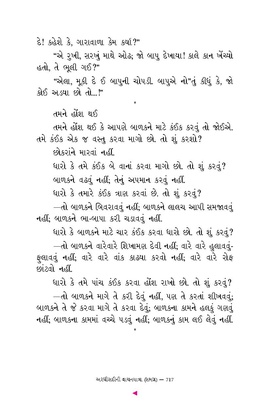 દે! કહેશે કે, ગારાવાળા કેમ કર્યા?”
“એ રૂખી, સરખું માથે ઓઢ; જો બાપુ દેખાયા! કાલે કાન ખેંચ્યો
હતો, તે ભૂલી ગઈ?”
“એલા, મૂકી દે ઈ બાપુની ચોપડી. બાપુએ નો’તું કીધું કે, જો
કોઈ અડયા છો તો...!”
*
તમને હોંશ થઈ
તમને હોંશ થઈ કે આપણે બાળકને માટે કંઈક કરવું તો જોઈએ.
તમે કંઈક એક જ વસ્તુ કરવા માગો છો. તો શું કરશો?
છોકરાંને મારવાં નહીં.
ધારો કે તમે કંઈક બે વાનાં કરવા માગો છો. તો શું કરવું?
બાળકને વઢવું નહીં; તેનું અપમાન કરવું નહીં.
ધારો કે તમારે કંઈક ત્રણ કરવાં છે. તો શું કરવું?
—તો બાળકને બિવરાવવું નહીં; બાળકને લાલચ આપી સમજાવવું
નહીં; બાળકને ભા-બાપા કરી ચડાવવું નહીં.
ધારો કે બાળકને માટે ચાર કંઈક કરવા ધારો છો. તો શું કરવું?
—તો બાળકને વારેવારે શિખામણ દેવી નહીં; વારે વારે હુલાવવું-
ફુલાવવું નહીં; વારે વારે વાંક કાઢયા કરવો નહીં; વારે વારે રોફ
છાંટવો નહીં.
ધારો કે તમે પાંચ કંઈક કરવા હોંશ રાખો છો. તો શું કરવું?
—તો બાળકને માગે તે કરી દેવું નહીં, પણ તે કરતાં શીખવવું;
બાળકને તે જે કરવા માગે તે કરવા દેવું; બાળકના કામને હલકું ગણવું
નહીં; બાળકના કામમાં વચ્ચે પડવું નહીં; બાળકનું કામ લઈ લેવું નહીં.
*